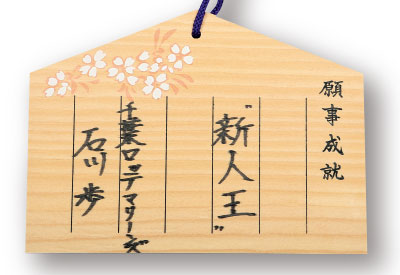 願事成就
〝新人王〟
千葉ロッテマリーンズ
石川歩